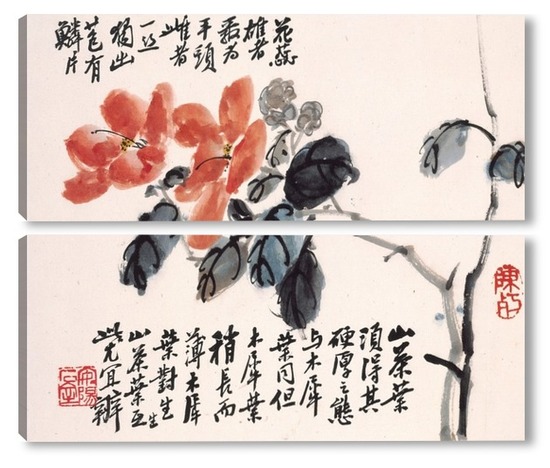 花蕊
雄者
聚为
平頭
雌者
一丝
獨出
苞有
鱗片
山茶葉
須得其
硬厚之態
与木犀
葉同但
木犀葉
稍長而
薄木犀
葉對生
山茶葉互生
此尤宜辨
陳